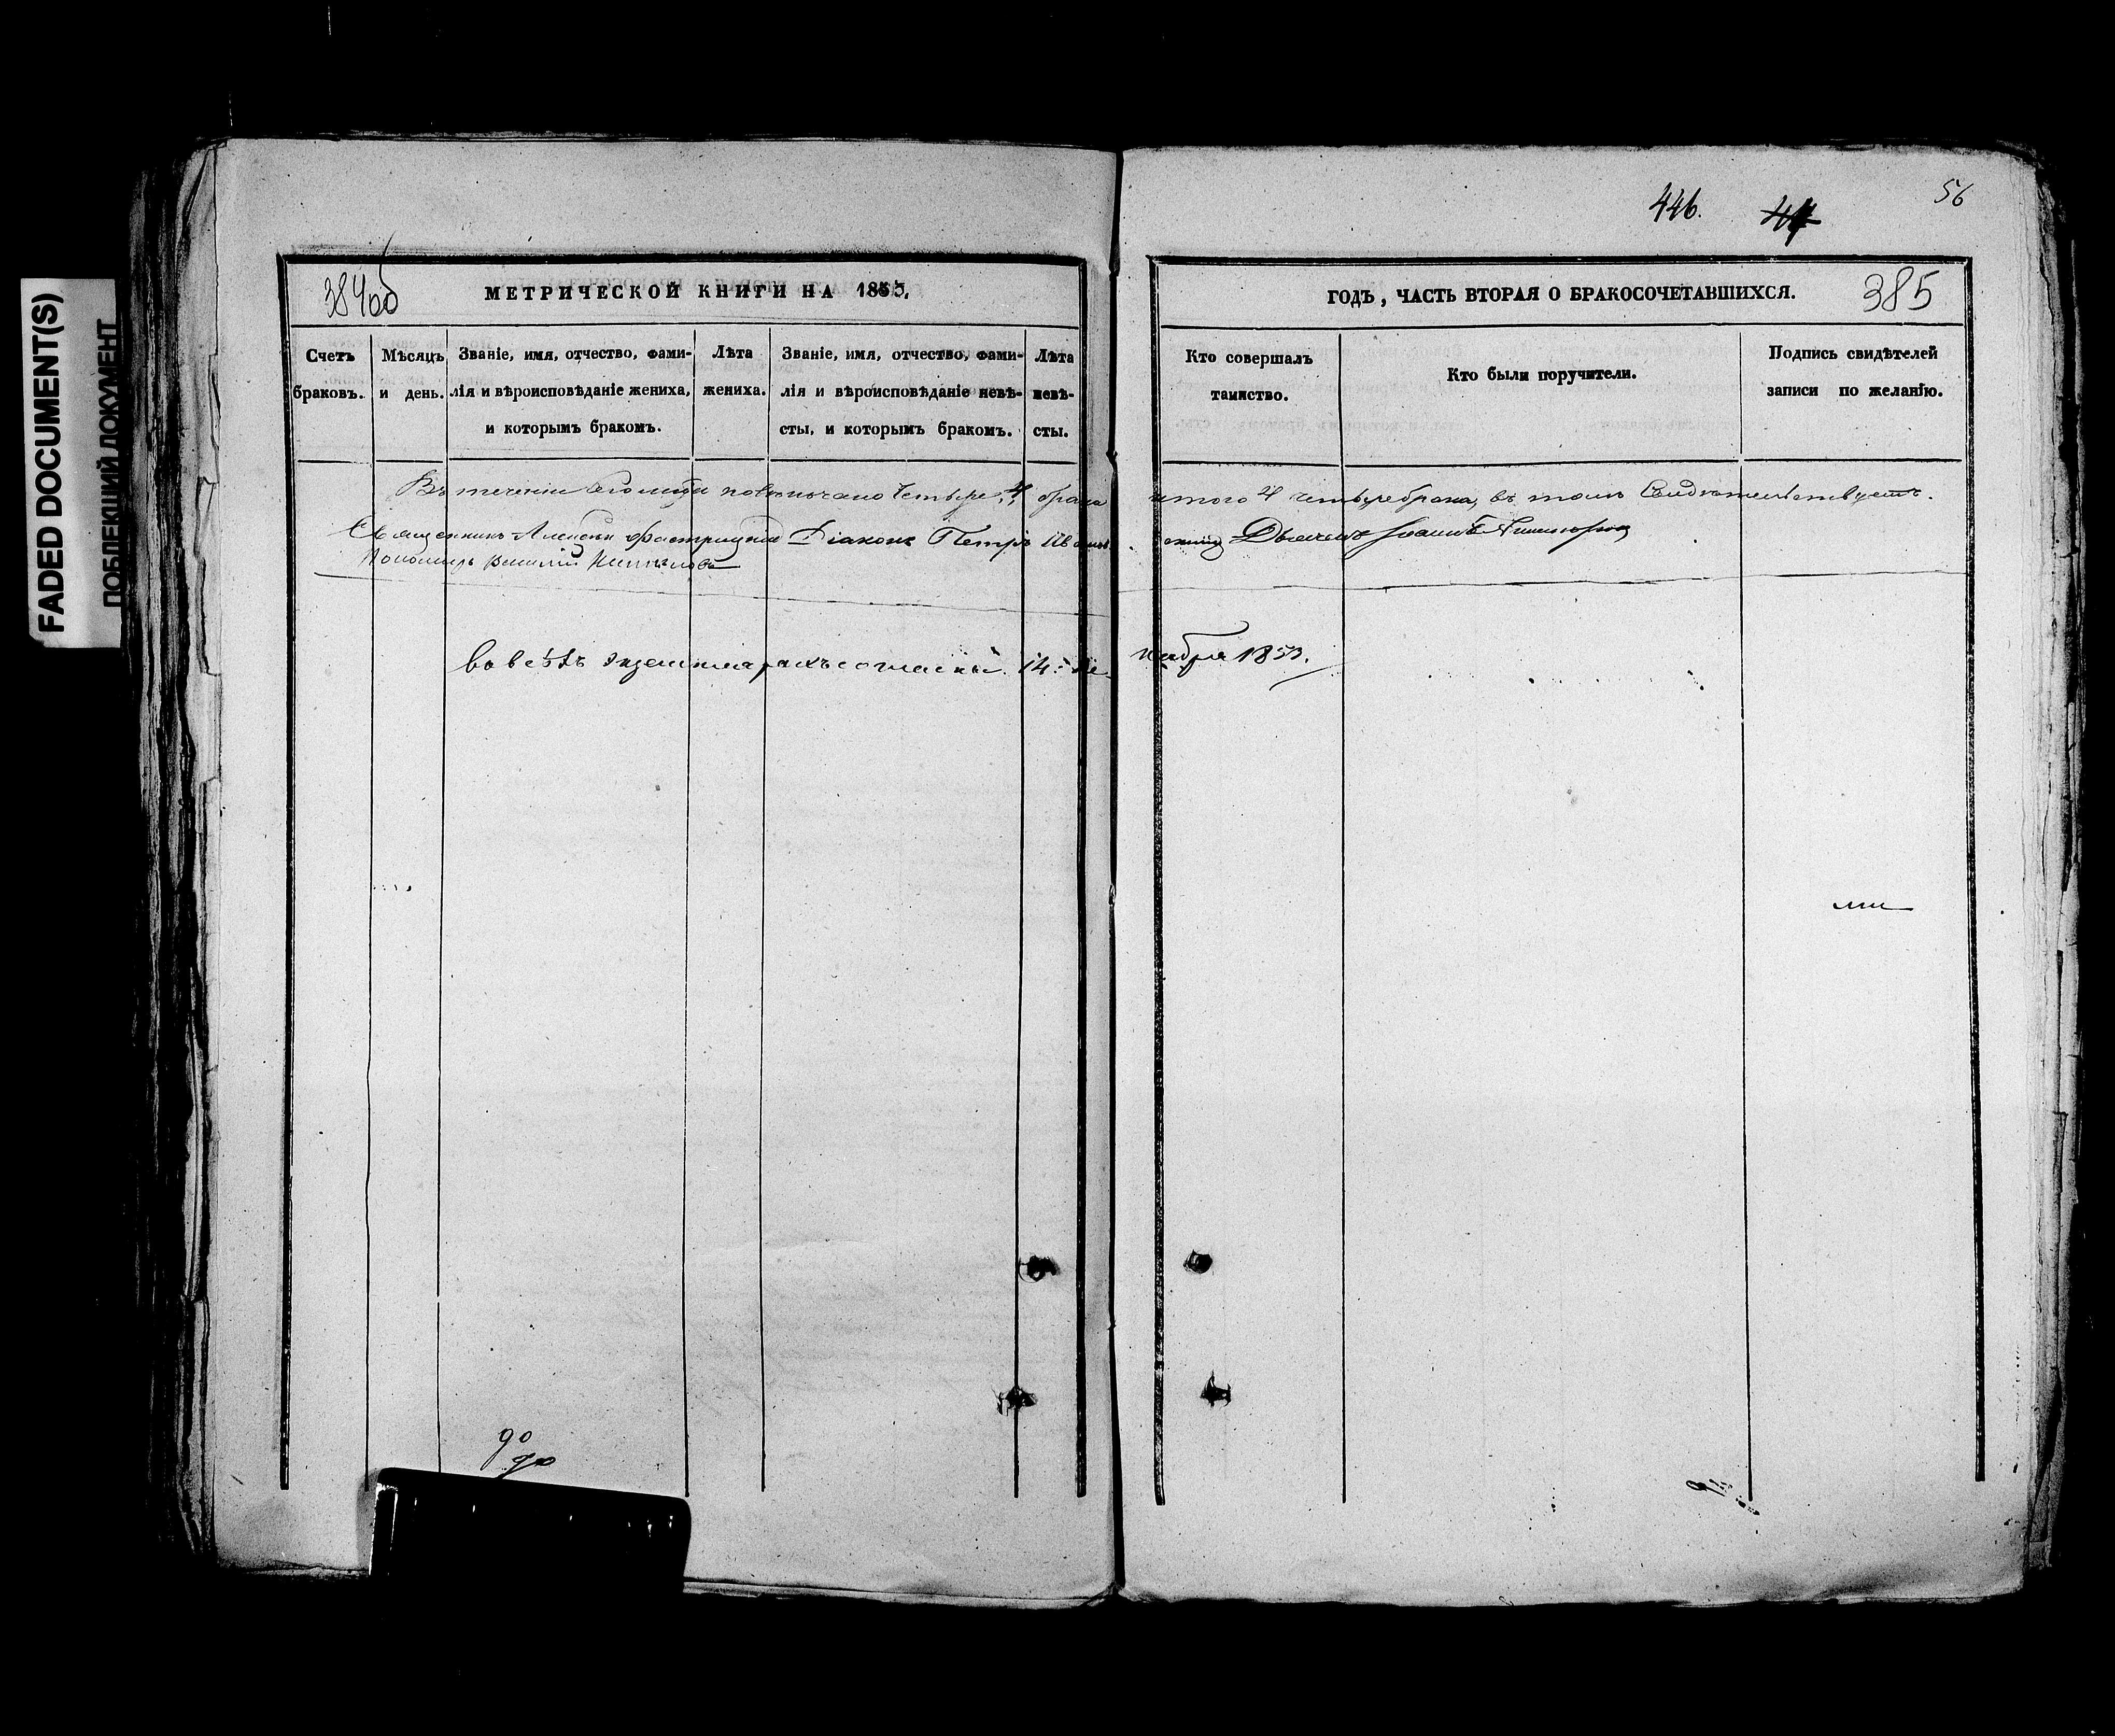 FADED DOCUMENT(S)
ПОБЛЕКШИЙ ДОКУМЕНТ
446.
44
56
384об
МЕТРИЧЕСКОЙ КНИГИ НА 1853,
ГОДЪ, ЧАСТЬ ВТОРАЯ О БРАКОСОЧЕТАВШИХСЯ.
385
Счетъ
браковъ.
Мѣсяцъ
и день.
Званіе, имя, отчество, фами-
лія и вѣроисповѣданіе жениха,
и которымъ бракомъ.
Лѣта
жениха.
Званіе, имя, отчество, фами-
лія и вѣроисповѣданіе невѣ-
сты, и которымъ бракомъ.
Лѣта
невѣ-
сты.
Кто совершалъ
таинство.
Кто были поручители.
Подпись свидѣтелей
записи по желанію.
Въ теченіи повѣнчано четыре, 4 брака итого 4 четыре брака, въ томъ свидѣтельствуютъ.
Священникъ Алексѣй Діаконъ Петръ Дьячекъ Іоаннъ
Пономарь Василій
во всѣхъ экземплярахъ согласны. 14. Де- кабря 1853.